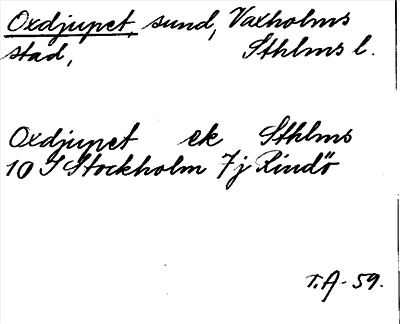 Oxdjupet, sund, Vaxholms
stad, Sthlms l.
Oxdjupet ek Sthlms
10 I Stockholm 7j Rindö
T.A. 59.